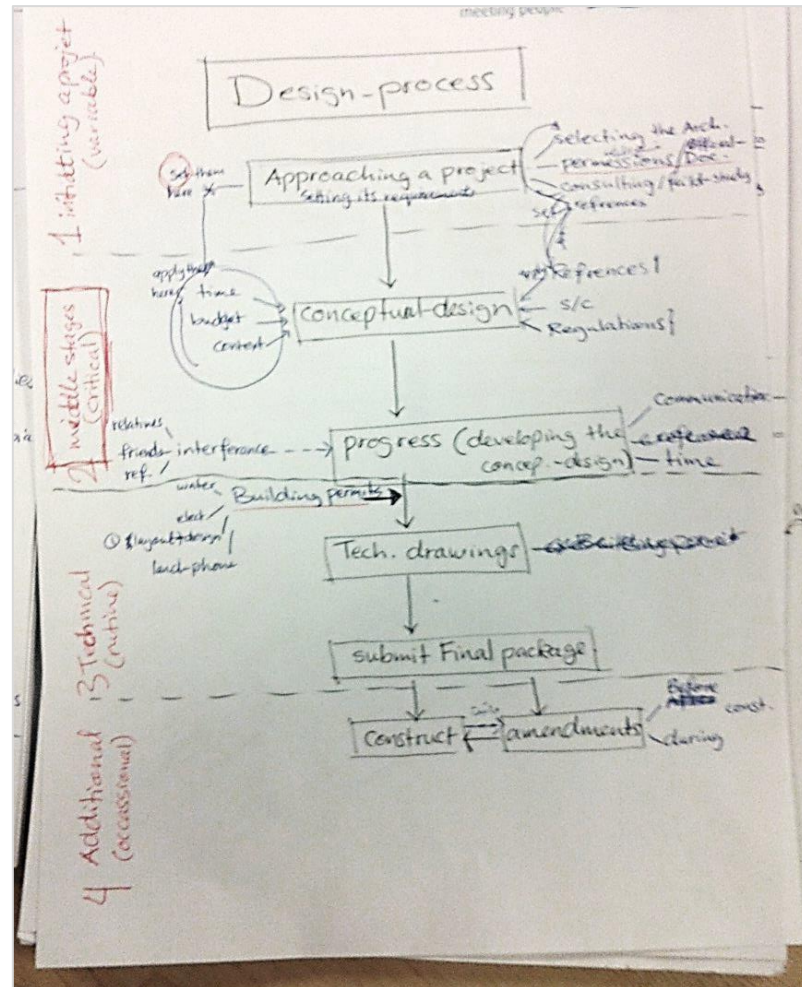 meeting people
1 initiating a projet
(variable)
Design-process
selecting the Arch.
set them
here
Approaching a project
setting its requirements
permissions/ Doc.
consulting/ study
set refrences
apply them
here
time
budget
context
conceptual-design
Refrences
s/c
Regulations
2 middle stages
(critical)
relatives
friends
ref.
interference
progress (developing the
concep.-design)
Communication
time
water
elect
layout+design
land-phone
Building permits
Tech. drawings
Building permit
3 Technical
(rutine)
submit Final package
4 Additional
(occassional)
construct
amendments
Before
After
const.
during